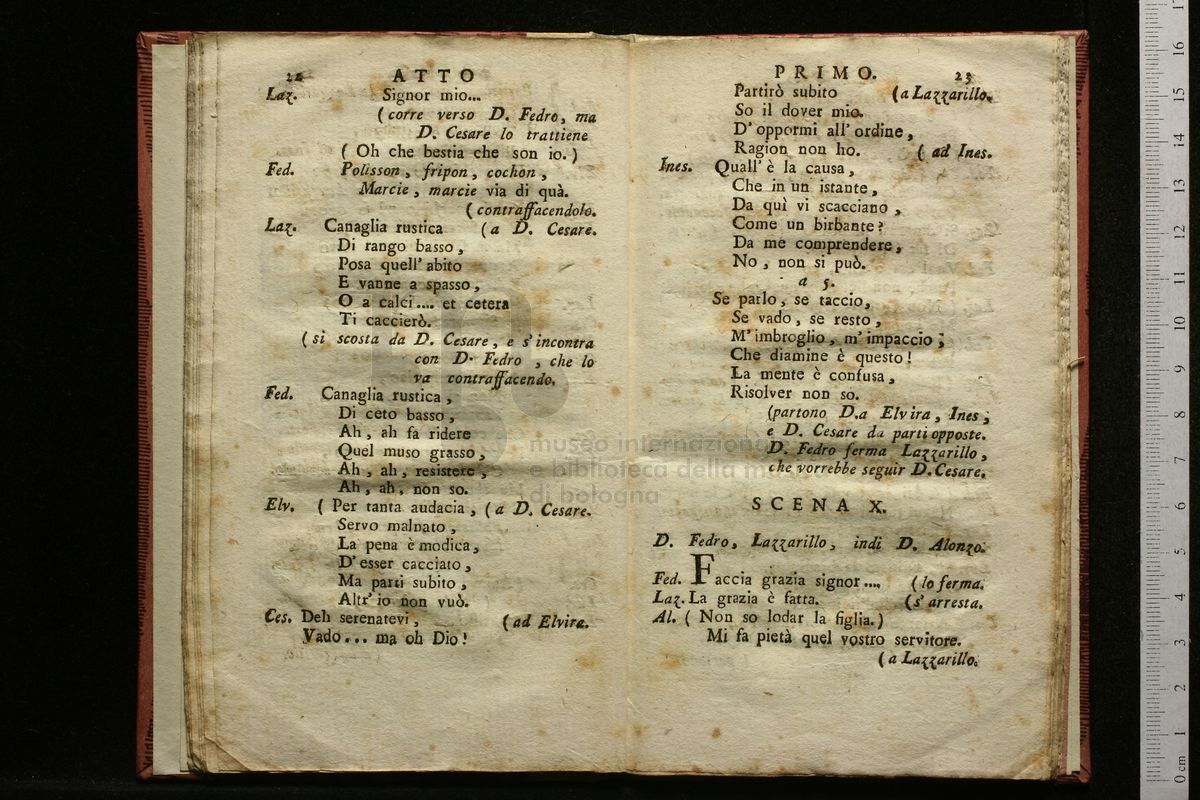 22 ATTO
Laz. Signor mio...
( corre verso D. Fedro, ma
D. Cesare lo trattiene
( Oh che bestia che son io. )
Fed. Polisson, fripon, cochon,
Marcie, marcie via di quà.
( contraffacendolo.
Laz. Canaglia rustica ( a D. Cesare.
Di rango basso,
Posa quell' abito
E vanne a spasso,
O a calci.... et cetera
Ti caccierò.
( si scosta da D. Cesare, e s'incontra
con D. Fedro, che lo
va contraffacendo.
Fed. Canaglia rustica,
Di ceto basso,
Ah, ah fa ridere
Quel muso grasso,
Ah, ah, resistere,
Ah, ah, non so.
Elv. ( Per tanta audacia, ( a D. Cesare.
Servo malnato,
La pena è modica,
D'esser cacciato,
Ma parti subito,
Altr' io non vuò.
Ces. Deh serenatevi, ( ad Elvira.
Vado... ma oh Dio!
PRIMO. 23
Partirò subito ( a Lazzarillo.
So il dover mio.
D'oppormi all' ordine,
Ragion non ho. ( ad Ines.
Ines. Quall' è la causa,
Che in un istante,
Da quì vi scacciano,
Come un birbante?
Da me comprendere,
No, non si può.
a 5.
Se parlo, se taccio,
Se vado, se resto,
M'imbroglio, m'impaccio;
Che diamine è questo!
La mente è confusa,
Risolver non so.
(partono D.a Elvira, Ines;
e D. Cesare da parti opposte.
D. Fedro ferma Lazzarillo,
che vorrebbe seguir D. Cesare.
SCENA X.
D. Fedro, Lazzarillo, indi D. Alonzo.
Fed. Faccia grazia signor.... ( lo ferma.
Laz. La grazia è fatta. (s'arresta.
Al. ( Non so lodar la figlia.)
Mi fa pietà quel vostro servitore.
( a Lazzarillo.
museo internazionale
e biblioteca della m
di bologna
0 cm 1 2 3 4 5 6 7 8 9 10 11 12 13 14 15 16 17